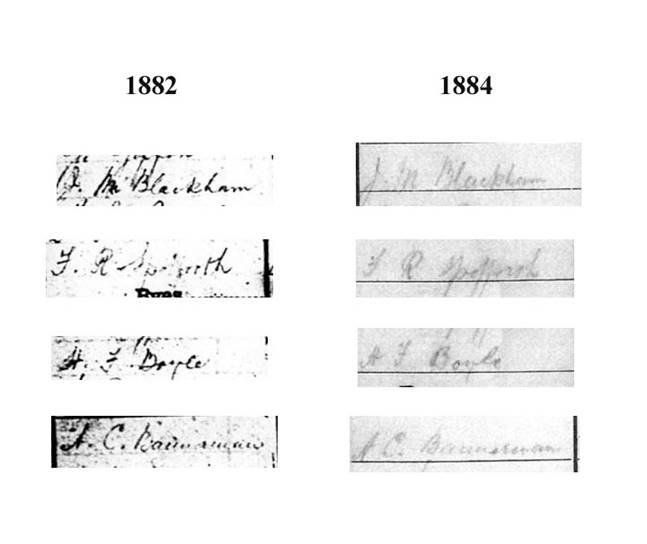 1882 1884
J. M. Blackham J. M Blackham
F. R Spofforth F R Spofforth
H. F. Boyle H F Boyle
Byes
A. C. Bannerman A C. Bannerman